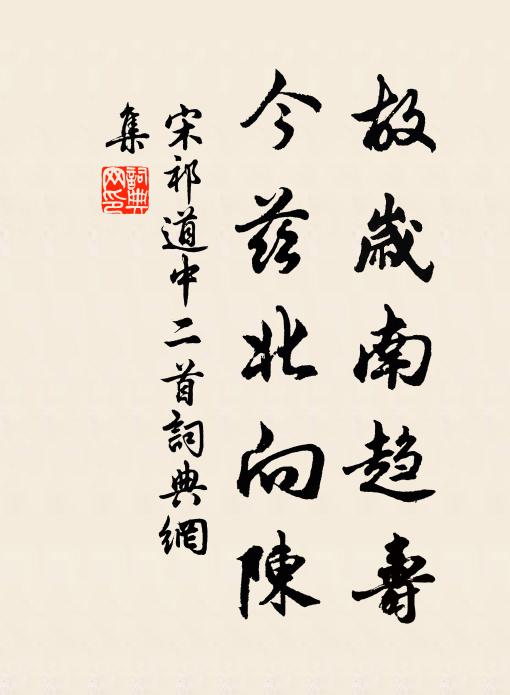 故歲南趋壽
今茲北向陳
宋祁道中二首詞典網
集
詞典
网印